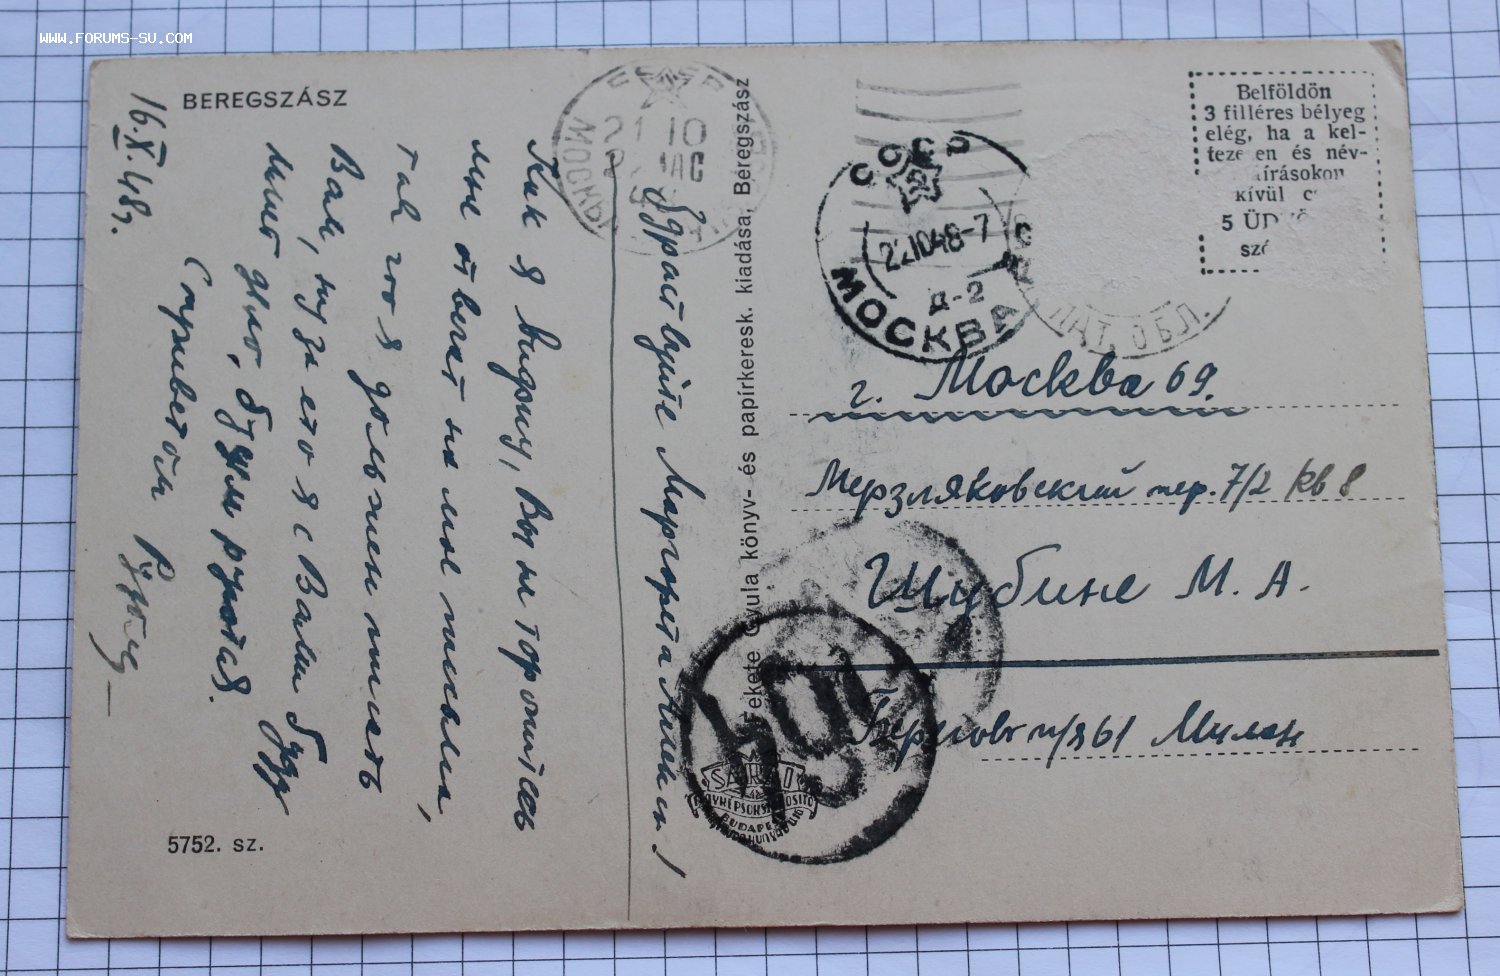 WWW.FORUMS-SU.COM
BEREGSZÁSZ
16.X.48г.
Здраствуйте Маргарета Алекс.!
Как я вифжу, Вы не торопитесь
мне отвечат на мое письмо,
так что я должен писать
Вам, ну за ето я с Вами буду
имет дело, будем ругатся.
С приветом
5752. sz.
Fekete Gyula könyv- és papírkeresk. kiadása, Beregszász
СССР
21 10
МОСКВА
СССР
22.10.48-7
Д-2
МОСКВА
ПАТ. ОБЛ.
Belföldön
3 filléres bélyeg
elég, ha a kel-
tezésen és név-
aláírásokon
kívül
5 ÜD
szó
г. Москва 69.
Мерзляковский пер. 7/2 кв 8
Шубине М. А.
Берегово п/я 61 Милен
BUDAPEST